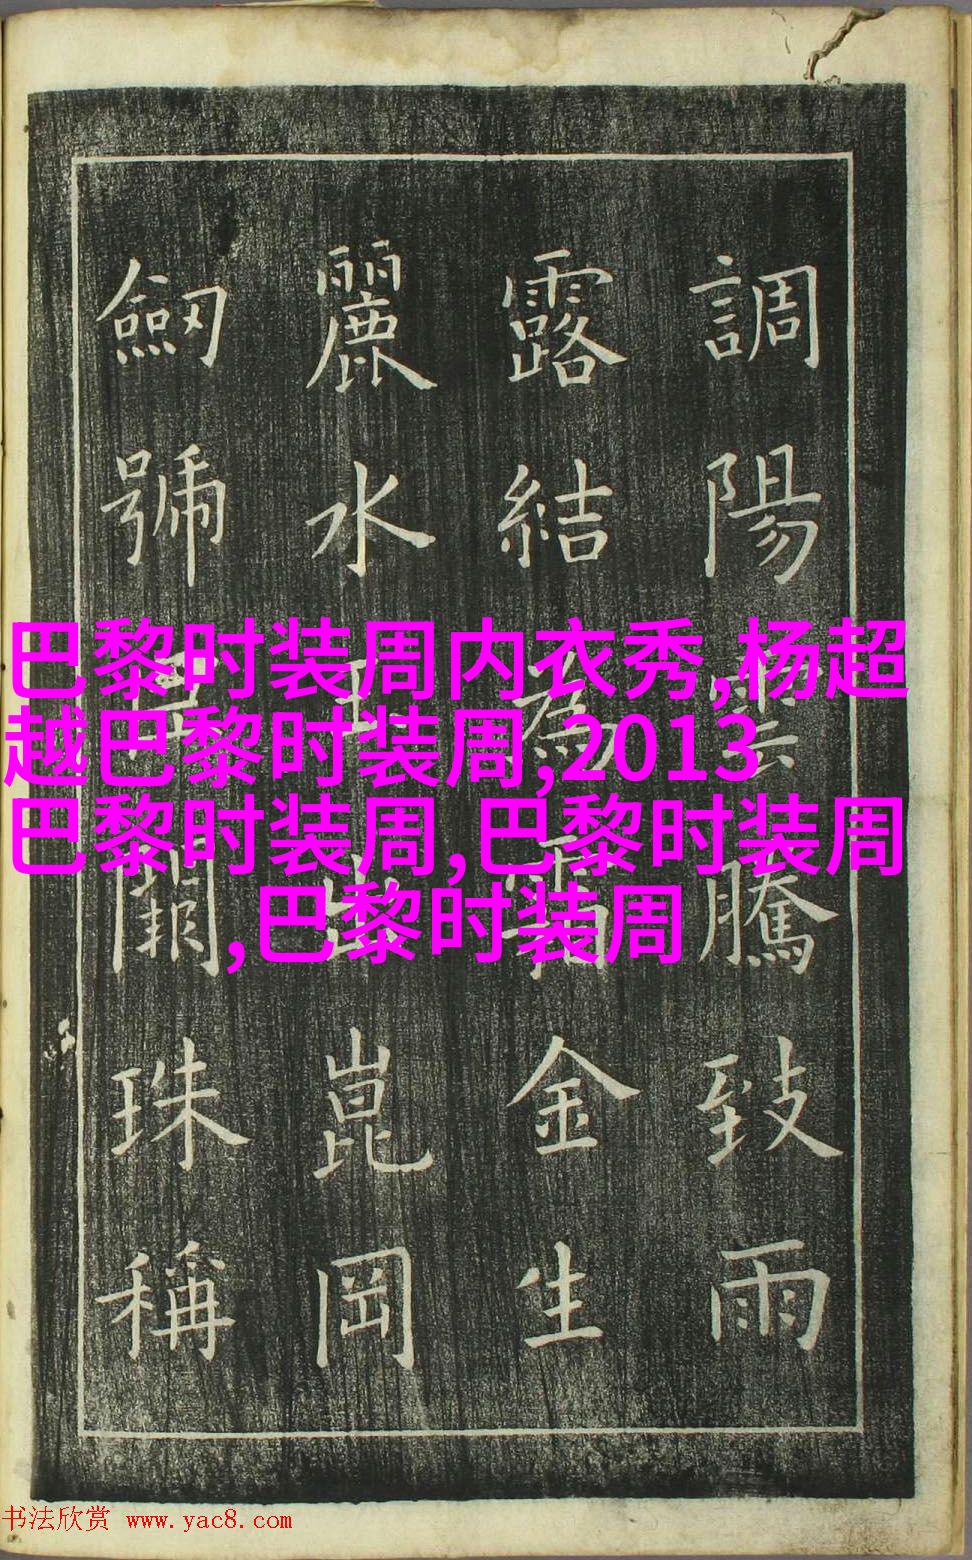 調陽雲騰致雨
露結為霜金生
麗水玉出崑岡
劔號巨闕珠稱
巴黎时装周内衣秀,杨超
越巴黎时装周,2013
巴黎时装周,巴黎时装周
,巴黎时装周
书法欣赏 www.yac8.com